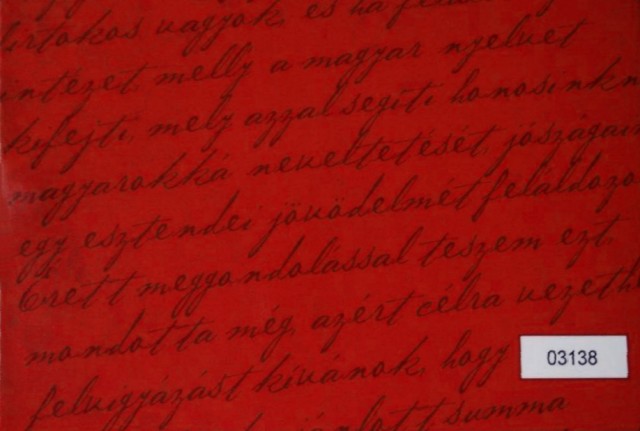 birtokos vagyok, és ha
intézet melly a magyar nyelvet
kifejti, mely azzal segiti honosink
magyarokká neveltetését, jószágai
egy esztendei jövödelmét feláldozo
Érett meggondolással teszem ezt,
mondotta még, azért célra vezeth
felvigyázást kívánok, hogy
03138
summa